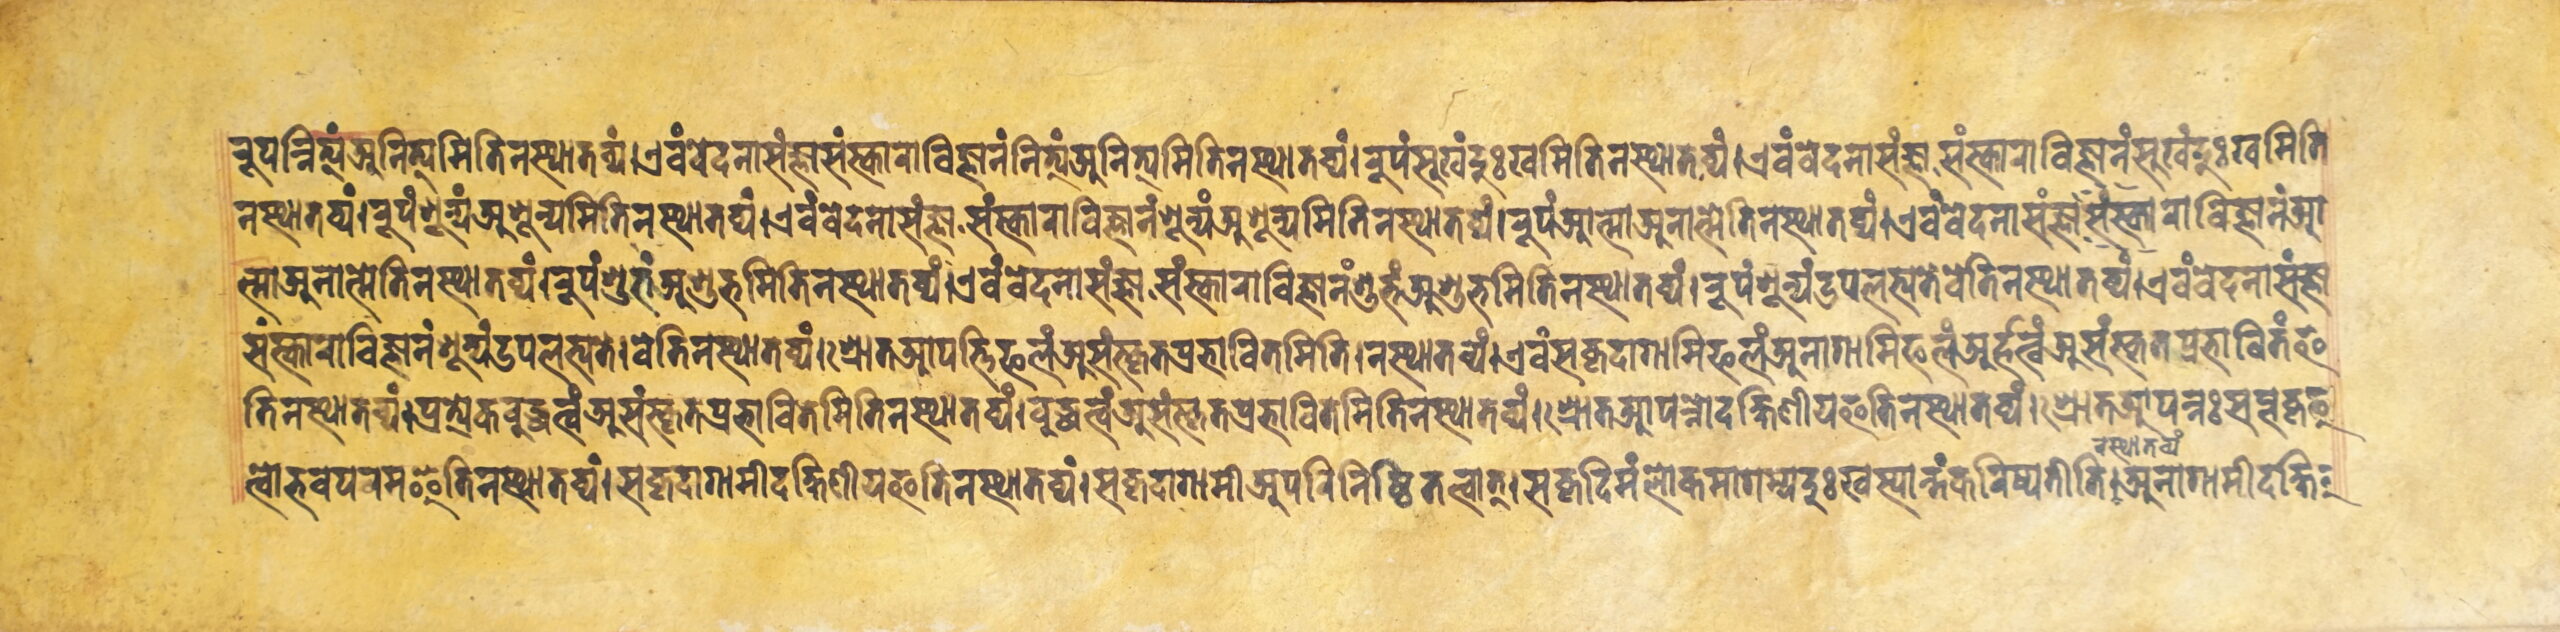 रूपन्नित्यंअनित्यमितिनस्थातव्यं।एवंवेदनासंज्ञासंस्काराविज्ञानंनित्यंअनित्यमितिनस्थातव्यं।रूपंसुखंदुःखमितिनस्थातव्यं।एवंवेदनासंज्ञासंस्काराविज्ञानंसुखंदुःखमिति
नस्थातव्यं।रूपंशून्यंअशून्यमितिनस्थातव्यं।एवंवेदनासंज्ञासंस्काराविज्ञानंशून्यंअशून्यमितिनस्थातव्यं।रूपंआत्माअनात्मेतिनस्थातव्यं।एवंवेदनासंज्ञासंस्काराविज्ञानंआ
त्माअनात्मेतिनस्थातव्यं।रूपंशुभंअशुभमितिनस्थातव्यं।एवंवेदनासंज्ञासंस्काराविज्ञानंशुभंअशुभमितिनस्थातव्यं।रूपंशून्यंउपलभ्यतेवेतिनस्थातव्यं।एवंवेदनासंज्ञा
संस्काराविज्ञानंशून्यंउपलभ्यते।वेतिनस्थातव्यं।श्रोतआपत्तिफलंअसंस्कृतप्रभावितमिति।नस्थातव्यं।एवंसकृदागामिफलंअनागामिफलंअर्हत्वंअसंस्कृतप्रभावितंइ
तिनस्थातव्यं।प्रत्येकबुद्धत्वंअसंस्कृतप्रभावितमितिनस्थातव्यं।बुद्धत्वंअसंस्कृतप्रभावितमितिनस्थातव्यं।श्रोतआपन्नोदक्षिणीयइतिनस्थातव्यं।श्रोतआपन्नःसप्तकृत्
त्वोभवपरमइतिनस्थातव्यं।सकृदागामीदक्षिणीयइतिनस्थातव्यं।सकृदागामीअपरिनिष्ठितत्वात्।सकृदिमंलोकमागम्यदुःखस्यान्तंकरिष्यतीति।अनागामीदक्षि
नस्थातव्यं